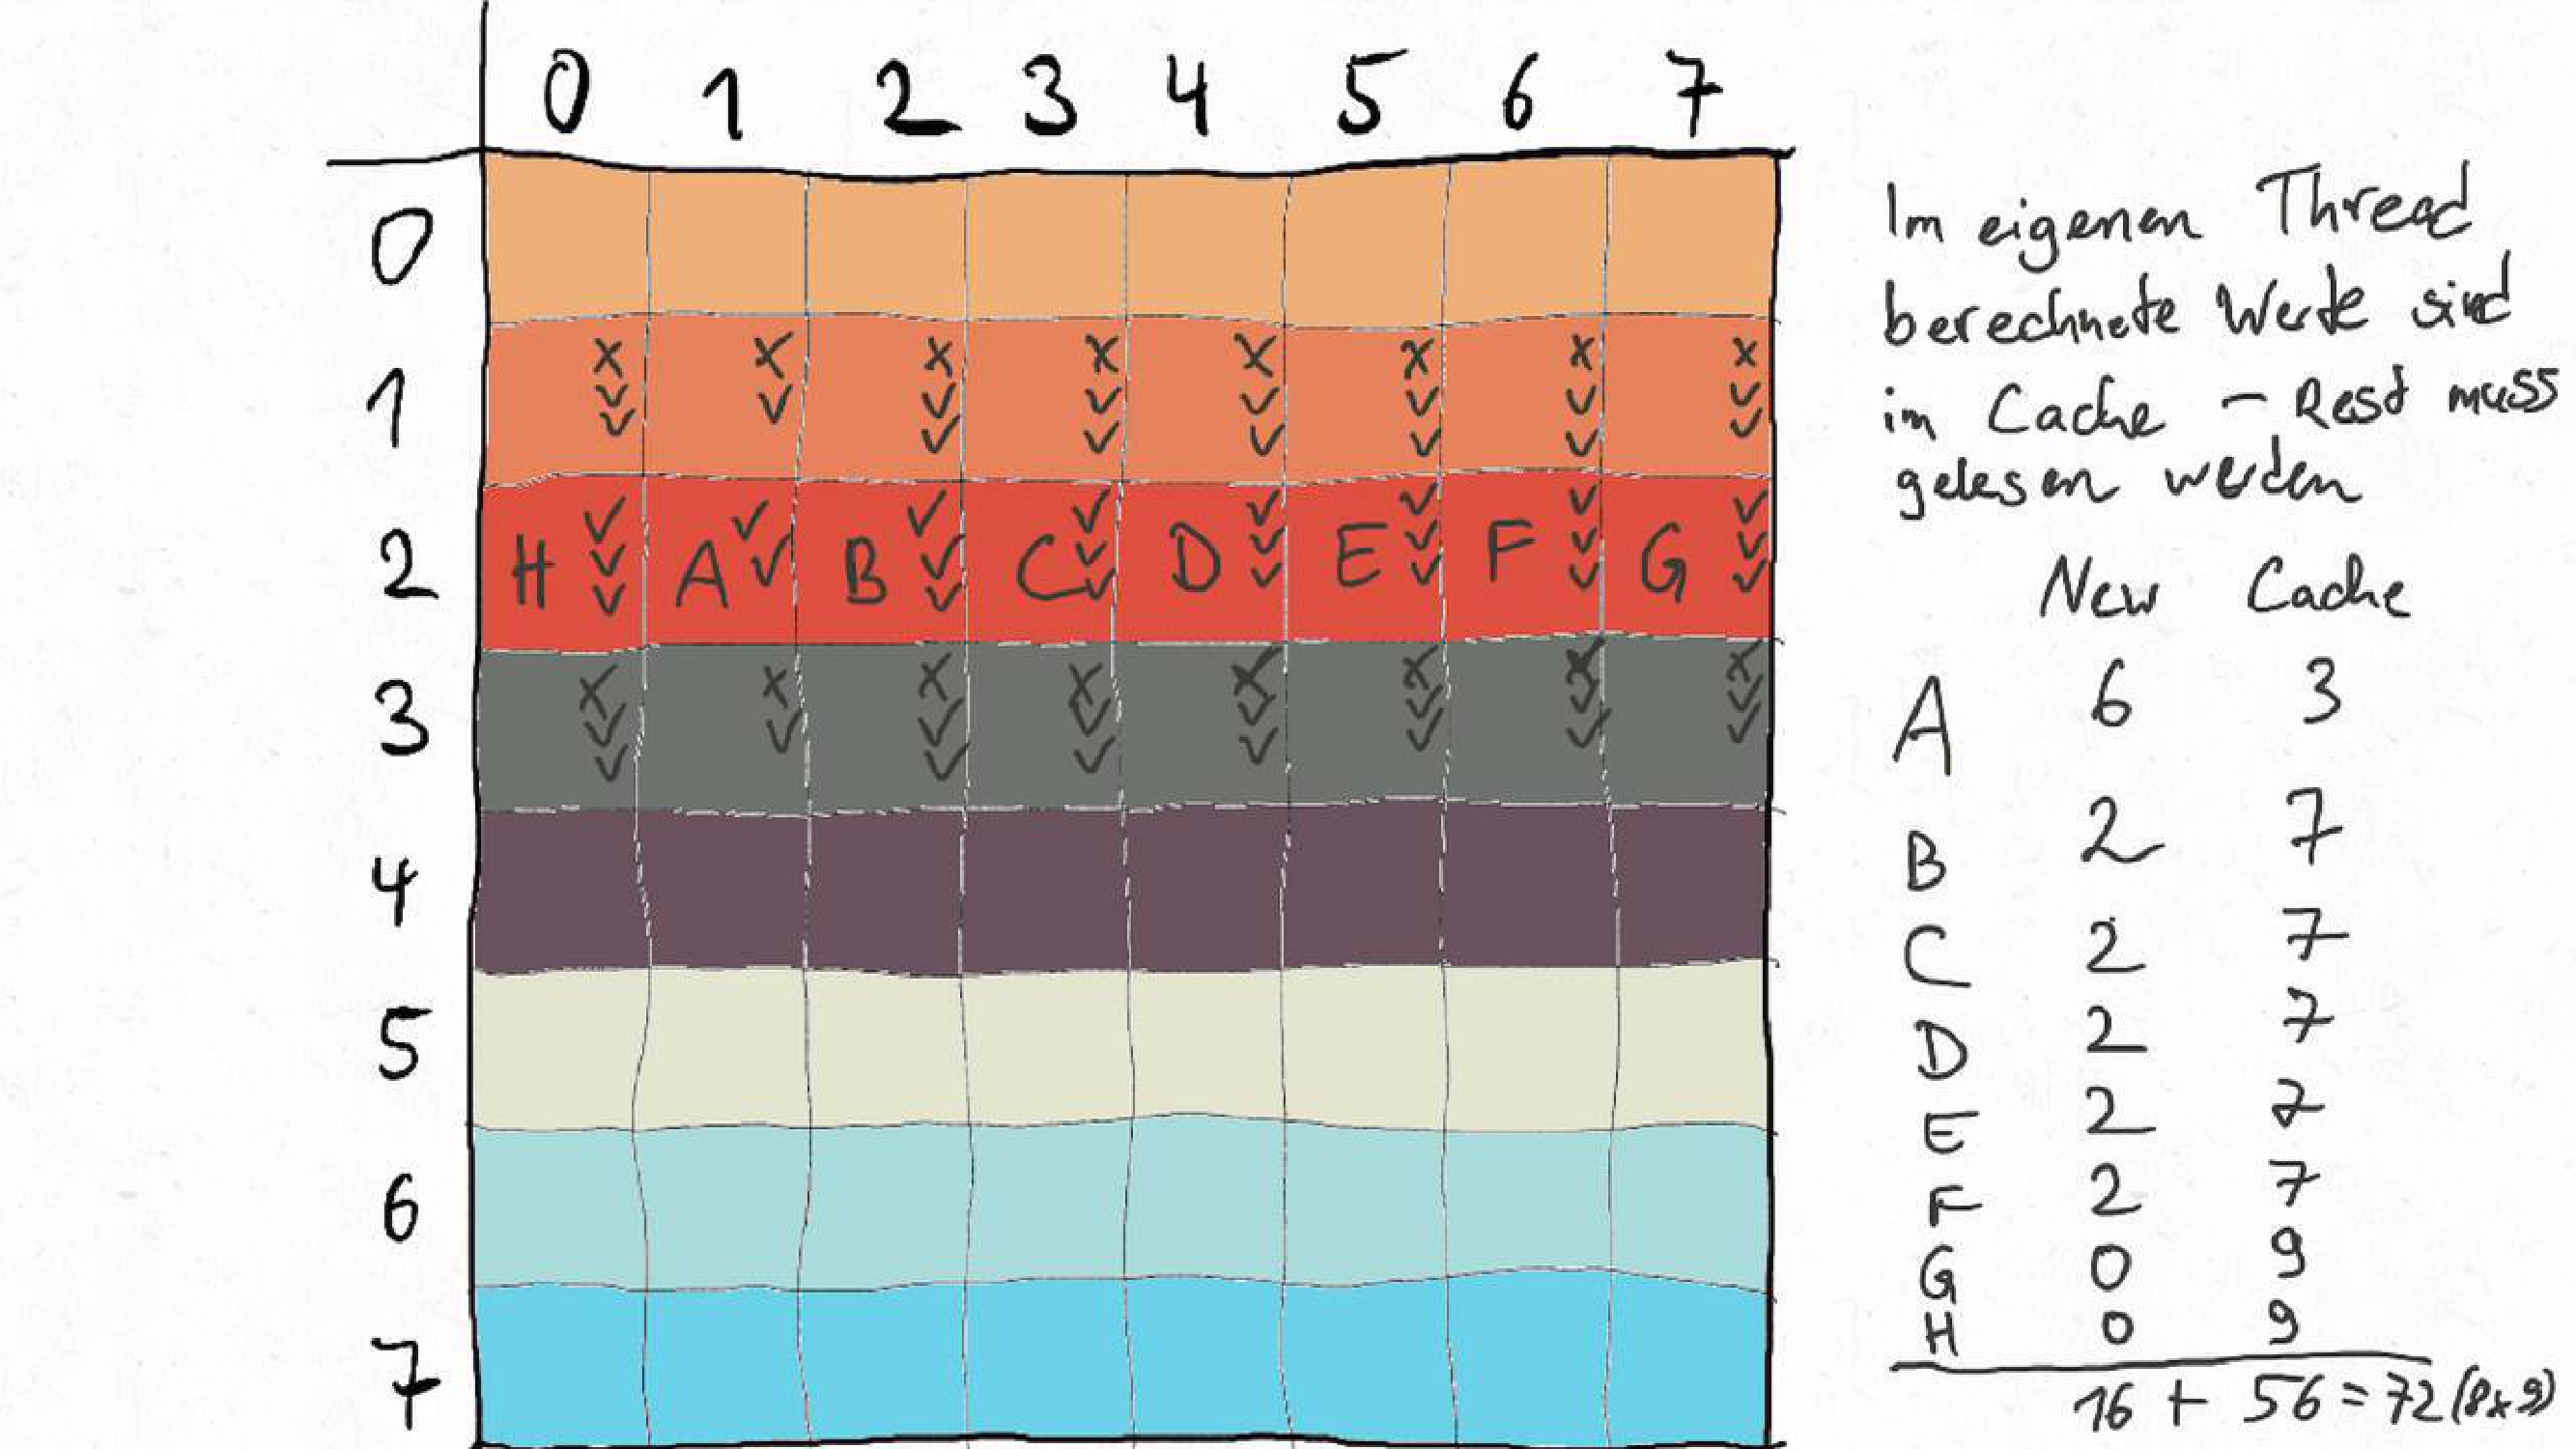 0 1 2 3 4 5 6 7
0
1
2 H A B C D E F G
3
4
5
6
7
Im eigenen Thread
berechnete Werte sind
im Cache – Rest muss
gelesen werden
New Cache
A 6 3
B 2 7
C 2 7
D 2 7
E 2 7
F 2 7
G 0 9
H 0 9
16 + 56 = 72 (8x9)